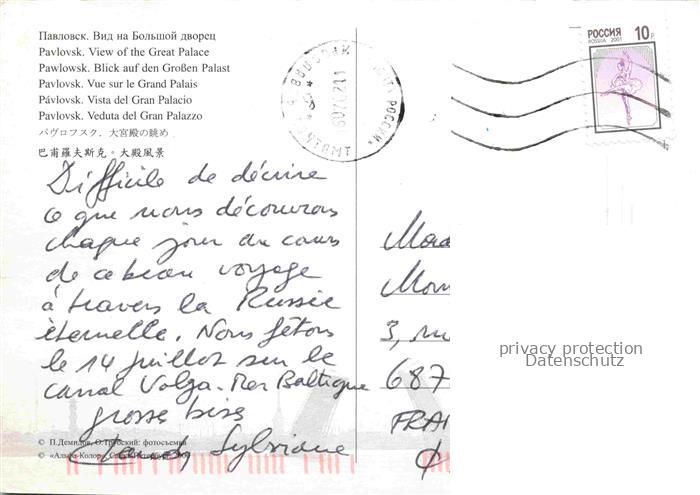 Павловск. Вид на Большой дворец
Pavlovsk. View of the Great Palace
Pawlowsk. Blick auf den Großen Palast
Pavlovsk. Vue sur le Grand Palais
Pávlovsk. Vista del Gran Palacio
Pavlovsk. Veduta del Gran Palazzo
パヴロフスク。大宮殿の眺め
巴甫羅夫斯克。大殿風景
РОССИЯ 10 р
ROSSIA 2001
Difficile de décrire
ce que nous découvrons
chaque jour au cours
de ce beau voyage
à travers la Russie
éternelle. Nous fêtons
le 14 juillet sur le
canal Volga-Mer Baltique
grosses bises
Sylviane
3,
687
FRA
privacy protection
Datenschutz
© П.Демидов, О.Трубский: фотосъемка
© «Альфа-Колор», Санкт-Петербург